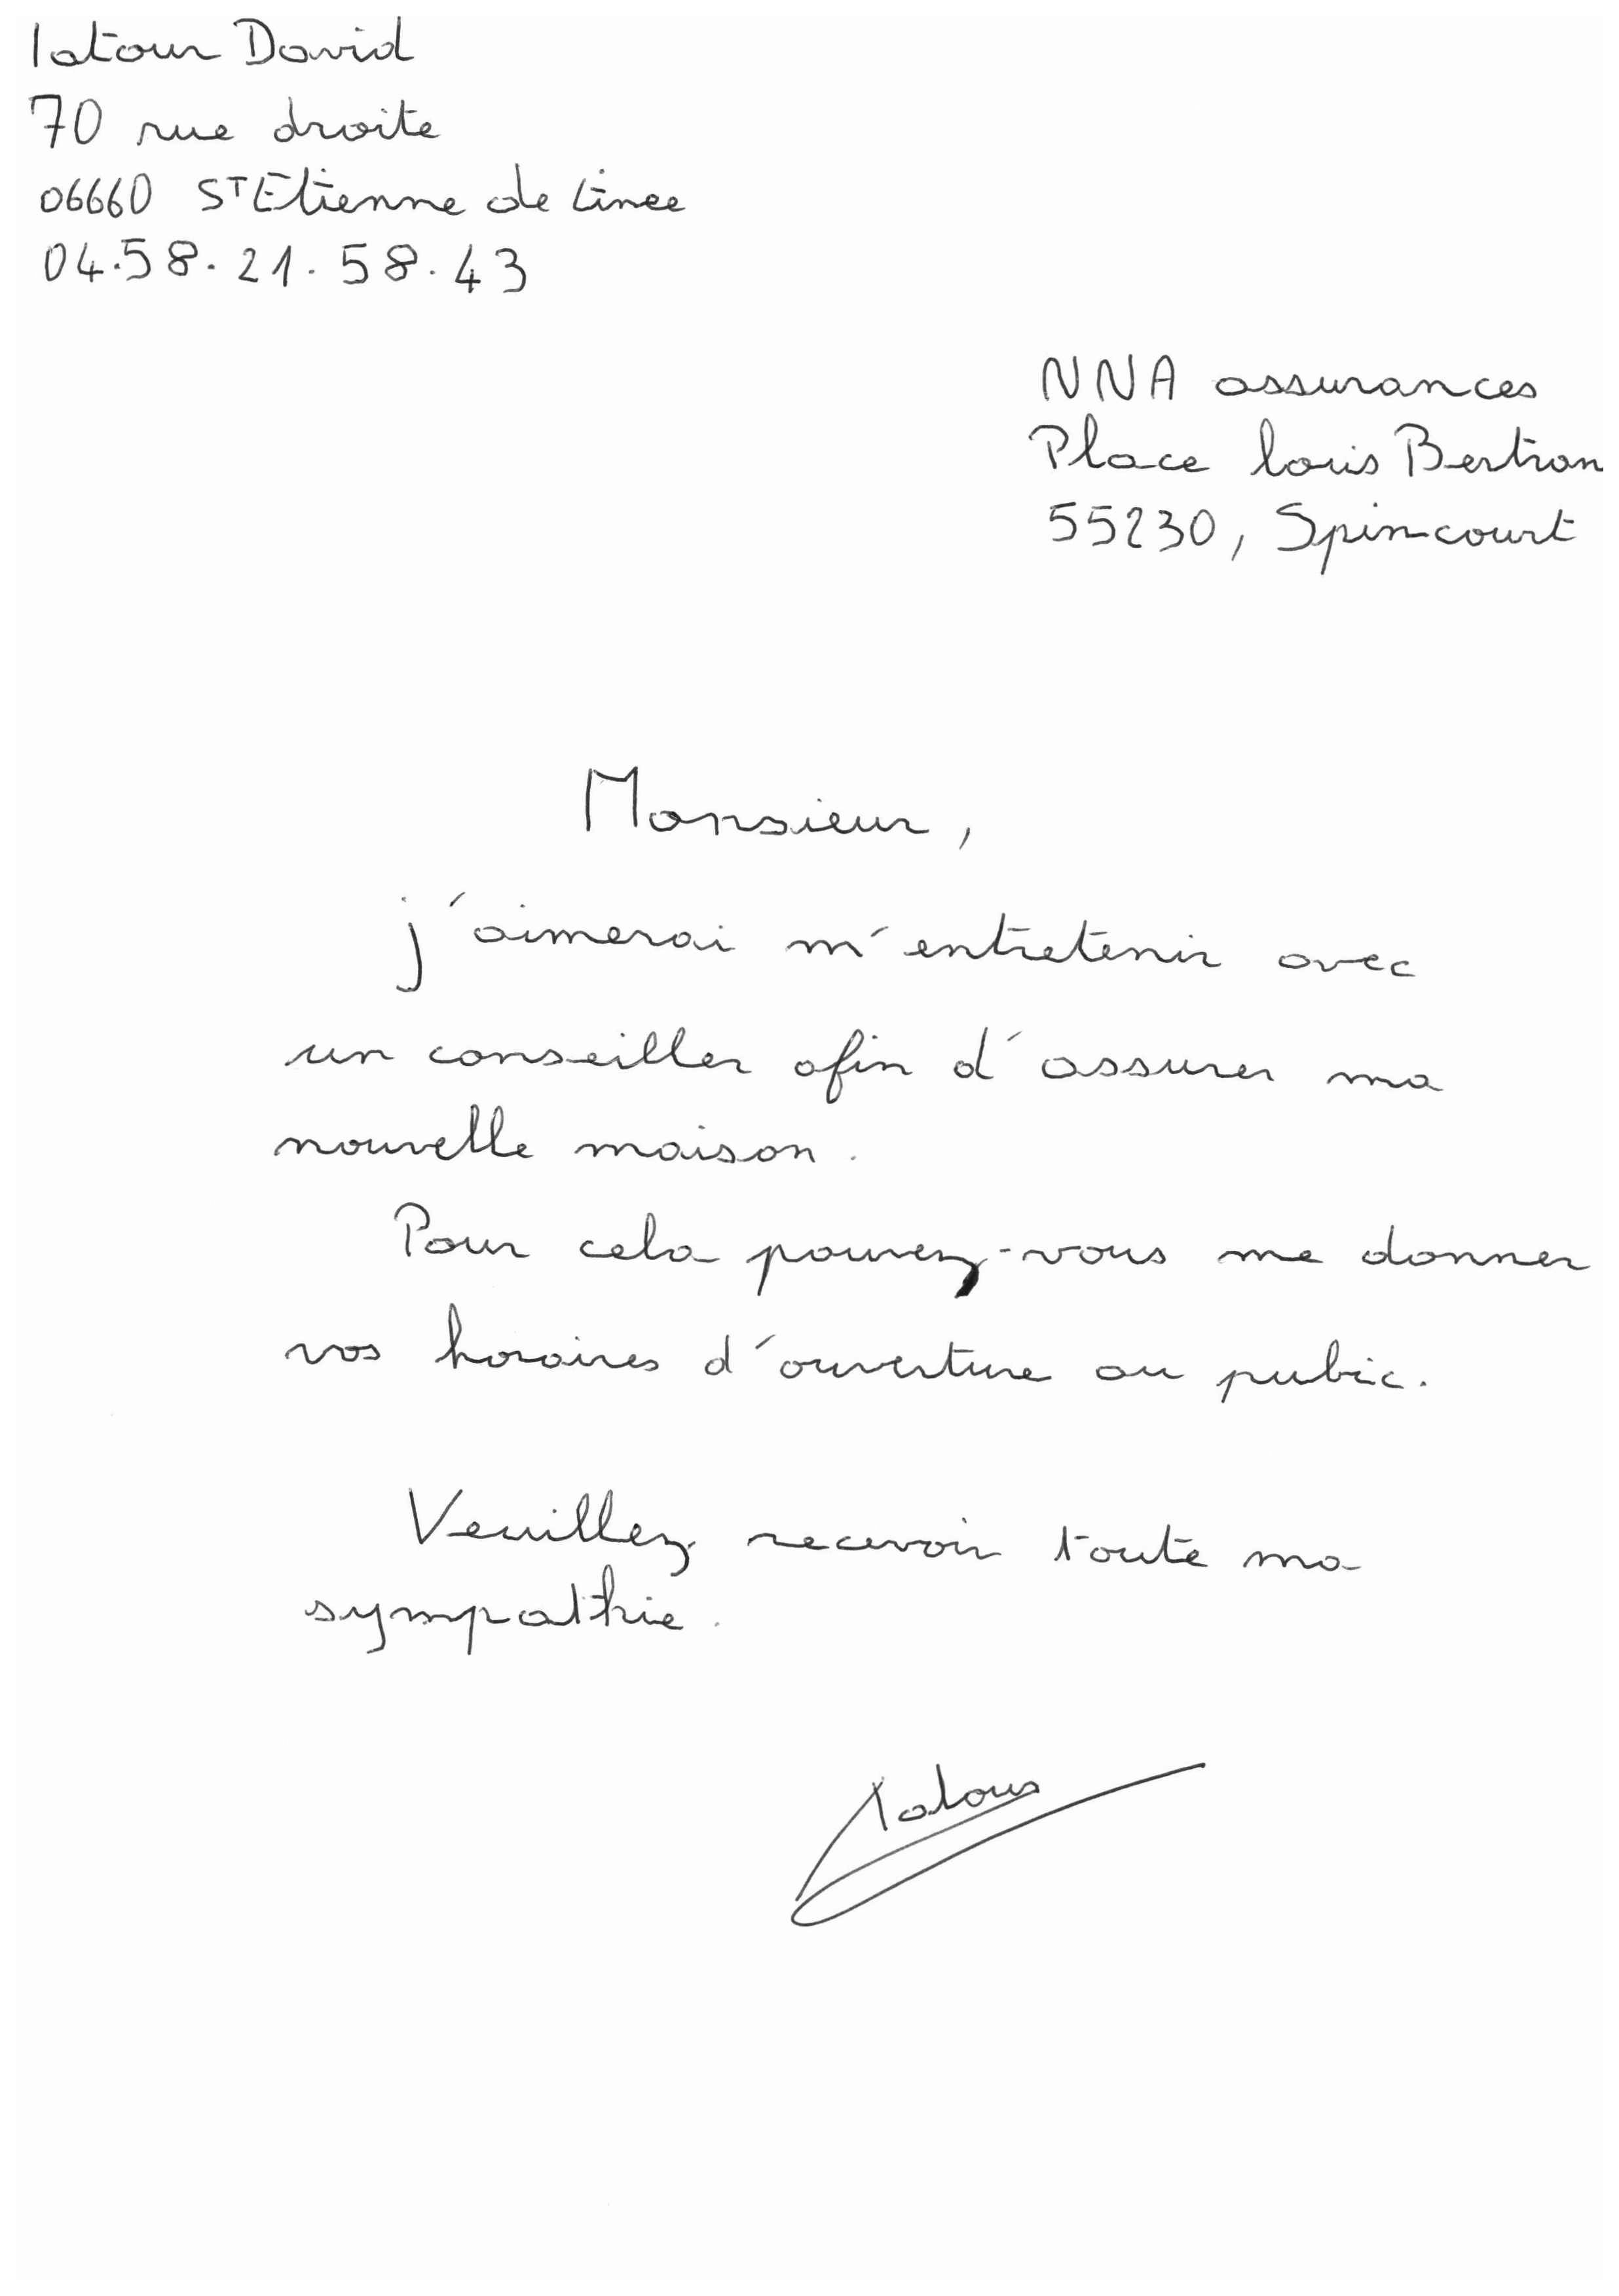 latour David
70 rue droite
06660 ST Etienne de tinee
04.58.21.58.43
NNA assurances
Place louis Bertran
55230, Spincourt
Monsieur,
j'aimerai m'entretenir avec
un conseiller afin d'assurer ma
nouvelle maison.
Pour cela pouvez-vous me donner
vos horaires d'ouverture au public.
Veuillez recevoir toute ma
sympathie.
latour